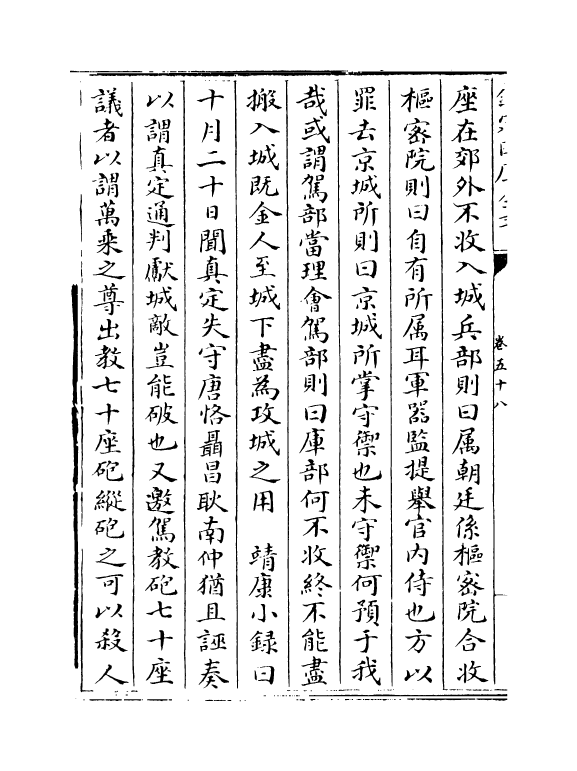 卷五十八
座在郊外不收入城兵部則曰属朝廷係樞宻院合收
樞宻院則曰自有所属耳軍器監提舉官内侍也方以
罪去京城所則曰京城所掌守禦也未守禦何預于我
哉或謂駕部當理會駕部則曰庫部何不收終不能盡
搬入城既金人至城下盡為攻城之用　靖康小録曰
十月二十日聞真定失守唐恪聶昌耿南仲猶且誣奏
以謂真定通判獻城敵豈能破也又邀駕教砲七十座
議者以謂萬乘之尊出教七十座砲縱砲之可以殺人